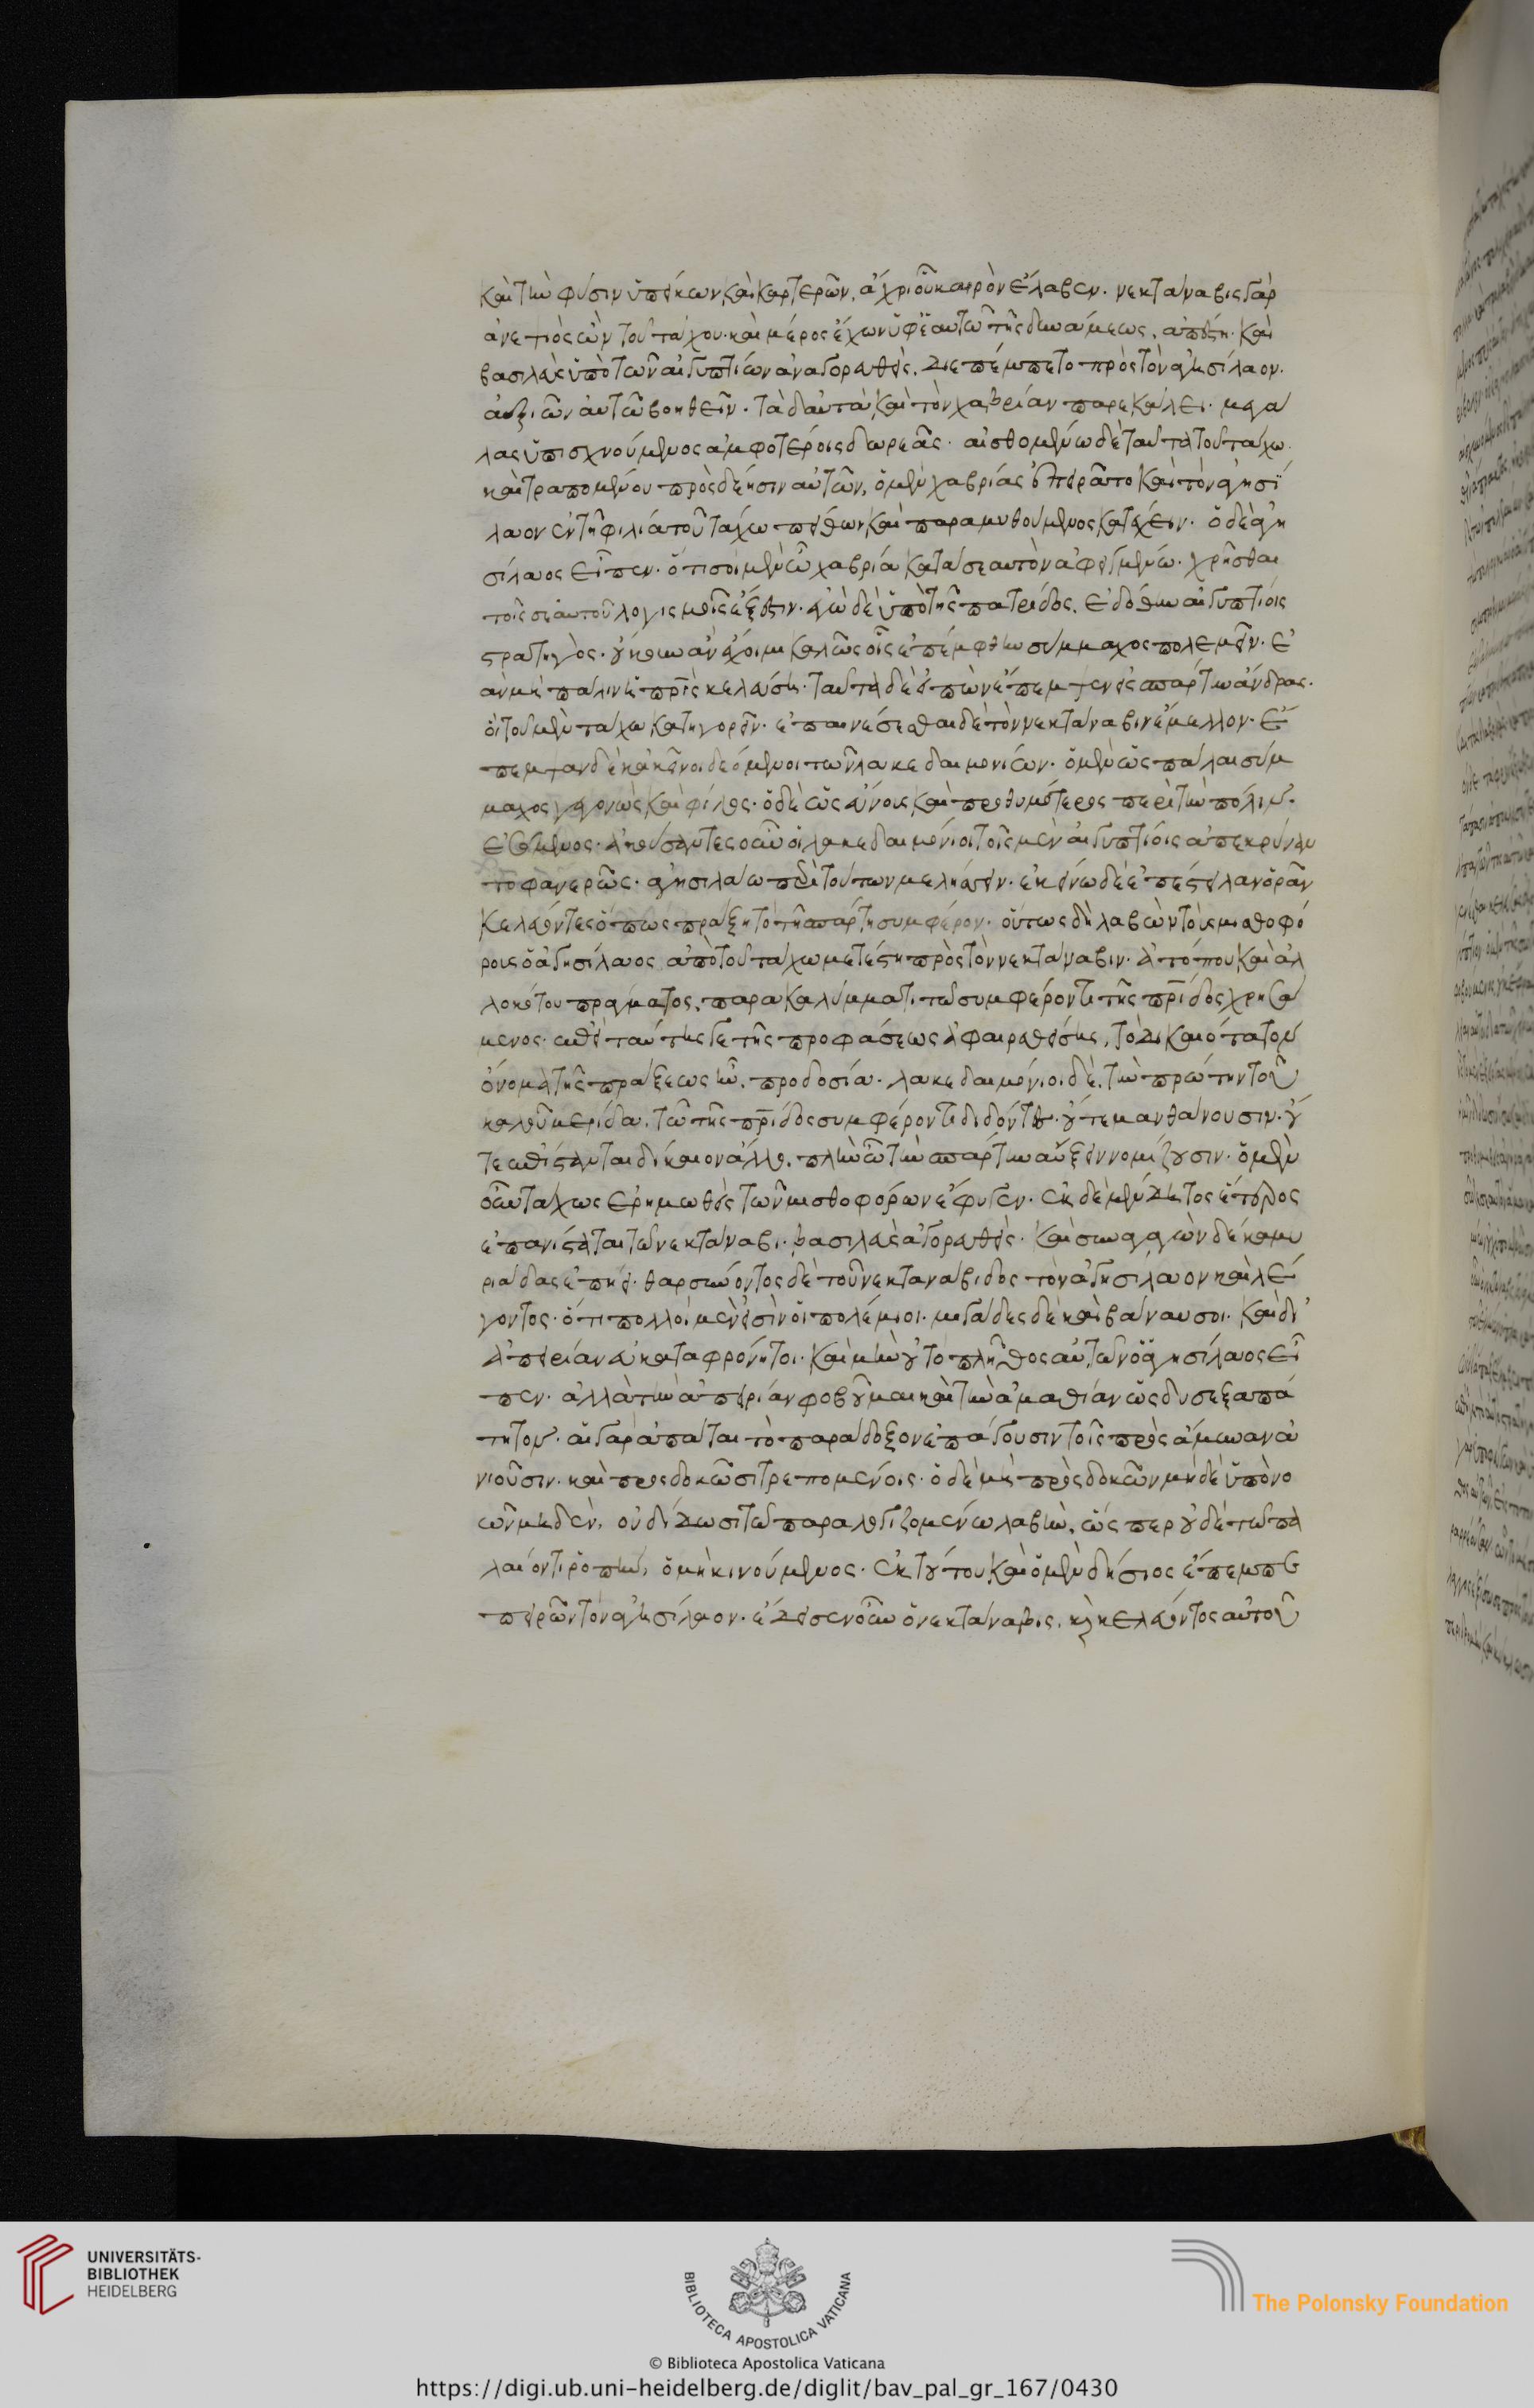 καὶ τὴν φύσιν ὑπείκων καὶ καρτερῶν, ἄχρι οὗ καιρὸν ἔλαβεν. νεκτάναβις γὰρ
ἀνεψιὸς ὢν τοῦ τάχου. καὶ μέρος ἔχων ὑφ' ἑαυτῶ τῆς δυνάμεως, ἀπέστη. καὶ
βασιλεὺς ὑπὸ τῶν αἰγυπτίων ἀναγορευθεὶς, διεπέμπετο πρὸς τὸν ἀγησίλαον.
ἀξιῶν αὑτῶ βοηθεῖν. τὰ δ' αὐτὰ καὶ τὸν χαβρίαν παρεκάλει. μεγά
λας ὑπισχνούμενος ἀμφοτέροις δωρεάς. αἰσθομένου δὲ ταῦτα τοῦ τάχου.
καὶ τραπομένου πρὸς δέησιν αὐτῶν, ὁ μὲν χαβρίας ἐπειρᾶτο καὶ τὸν ἀγησί
λαον ἐν τῆ φιλία τοῦ τάχου πείθων καὶ παραμυθούμενος κατέχειν. ὁ δὲ ἀγη
σίλαος εἶπεν. ὅτι σοὶ μὲν ὦ χαβρία κατὰ σεαυτὸν ἀφιγμένω. χρῆσθαι
τοῖς σεαυτοῦ λογισμοῖς ἔξεστιν. ἐγὼ δὲ ὑπὸ τῆς πατρίδος, ἐδόθην αἰγυπτίοις
στρατηγός. οὔκουν ἂν ἔχοι μοι καλῶς οἷς ἐπέμφθην σύμμαχος πολεμεῖν. ἐ
ὰν μὴ πάλιν ἡ πρὶς κελεύση. ταῦτα δὲ εἰπὼν ἔπεμψεν εἰς σπάρτην ἄνδρας.
οἳ τοῦ μὲν τάχω κατηγορεῖν. ἐπαινέσεσθαι δὲ τὸν νεκτάναβιν ἔμελλον. ἔ
πεμψαν δὲ κἀκεῖνοι δεόμενοι τῶν λακεδαιμονίων. ὁ μὲν ὡς πάλαι σύμ
μαχος γεγονὼς καὶ φίλος. ὁ δὲ ὡς εὔνους καὶ προθυμότερος περὶ τὴν πόλιν.
ἐσόμενος. ἀκούσαντες οὖν οἱ λακεδαιμόνιοι τοῖς μὲν αἰγυπτίοις ἀπεκρίναν
το φανερῶς. ἀγησιλάω περὶ τούτων μελήσειν. ἐκείνω δὲ ἐπέστειλαν ὁρᾶν
κελεύοντες ὅπως πράξη τὸ τῆ σπάρτη συμφέρον. οὕτως δὴ λαβὼν τοὺς μισθοφό
ρους ὁ ἀγησίλαος ἀπὸ τοῦ τάχω μετέστη πρὸς τὸν νεκτάναβιν. ἀτόπου καὶ ἀλ
λοκότου πράγματος, παρακαλύμματι τῶ συμφέροντι τῆς πρίδος χρησά
μενος. ἐπεὶ ταύτης γε τῆς προφάσεως ἀφαιρεθείσης, τὸ δικαιότατον
ὄνομα τῆς πράξεως ἦν, προδοσία. λακεδαιμόνιοι δὲ, τὴν πρώτην τοῦ
καλοῦ μερίδα, τῶ τῆς πρίδος συμφέροντι διδόντες. οὔτε μανθάνουσιν. οὔ
τε ἐπίστανται δίκαιον ἄλλο, πλὴν ὃ τὴν σπάρτην αὔξειν νομίζουσιν. ὁ μὲν
οὖν τάχως ἐρημωθεὶς τῶν μισθοφόρων ἔφυγεν. ἐκ δὲ μένδητος ἕτερος
ἐπανίσταται τῶ νεκτάναβι. βασιλεὺς ἀγορευθείς. καὶ συναγαγὼν δέκα μυ
ριάδας ἐπήει. θαρσύνοντος δὲ τοῦ νεκτανάβιδος τὸν ἀγησίλαον καὶ λέ
γοντος. ὅτι πολλοὶ μὲν εἰσὶν οἱ πολέμιοι. μιγάδες δὲ καὶ βάναυσοι. καὶ δι'
ἀπειρίαν εὐκαταφρόνητοι. καὶ μὴν οὐ τὸ πλῆθος αὐτῶν ὁ ἀγησίλαος εἶ
πεν. ἀλλὰ τὴν ἀπειρίαν φοβοῦμαι καὶ τὴν ἀμαθίαν ὡς δυσεξαπά
τητον. αἱ γὰρ ἀπάται τὸ παράδοξον ἐπάγουσιν τοῖς πρὸς ἄμυναν ἀ
νιοῦσιν. καὶ προσδοκῶσι τρεπομένοις. ὁ δὲ μὴ προσδοκῶν μὴδὲ ὑπονο
ῶν μηδὲν, οὐ δίδωσι τῶ παραλογιζομένω λαβὴν, ὥσπερ οὐδὲ τῶ πα
λαίοντι ῥοπὴν, ὁ μὴ κινούμενος. ἐκ τούτου καὶ ὁ μενδήσιος ἔπεμπε
πειρῶν τὸν ἀγησίλαον. ἔδεισεν οὖν ὁ νεκτάναβις, καὶ κελεύοντος αὐτοῦ
UNIVERSITÄTS-
BIBLIOTHEK
HEIDELBERG
BIBLIOTECA APOSTOLICA VATICANA
The Polonsky Foundation
© Biblioteca Apostolica Vaticana
https://digi.ub.uni-heidelberg.de/diglit/bav_pal_gr_167/0430